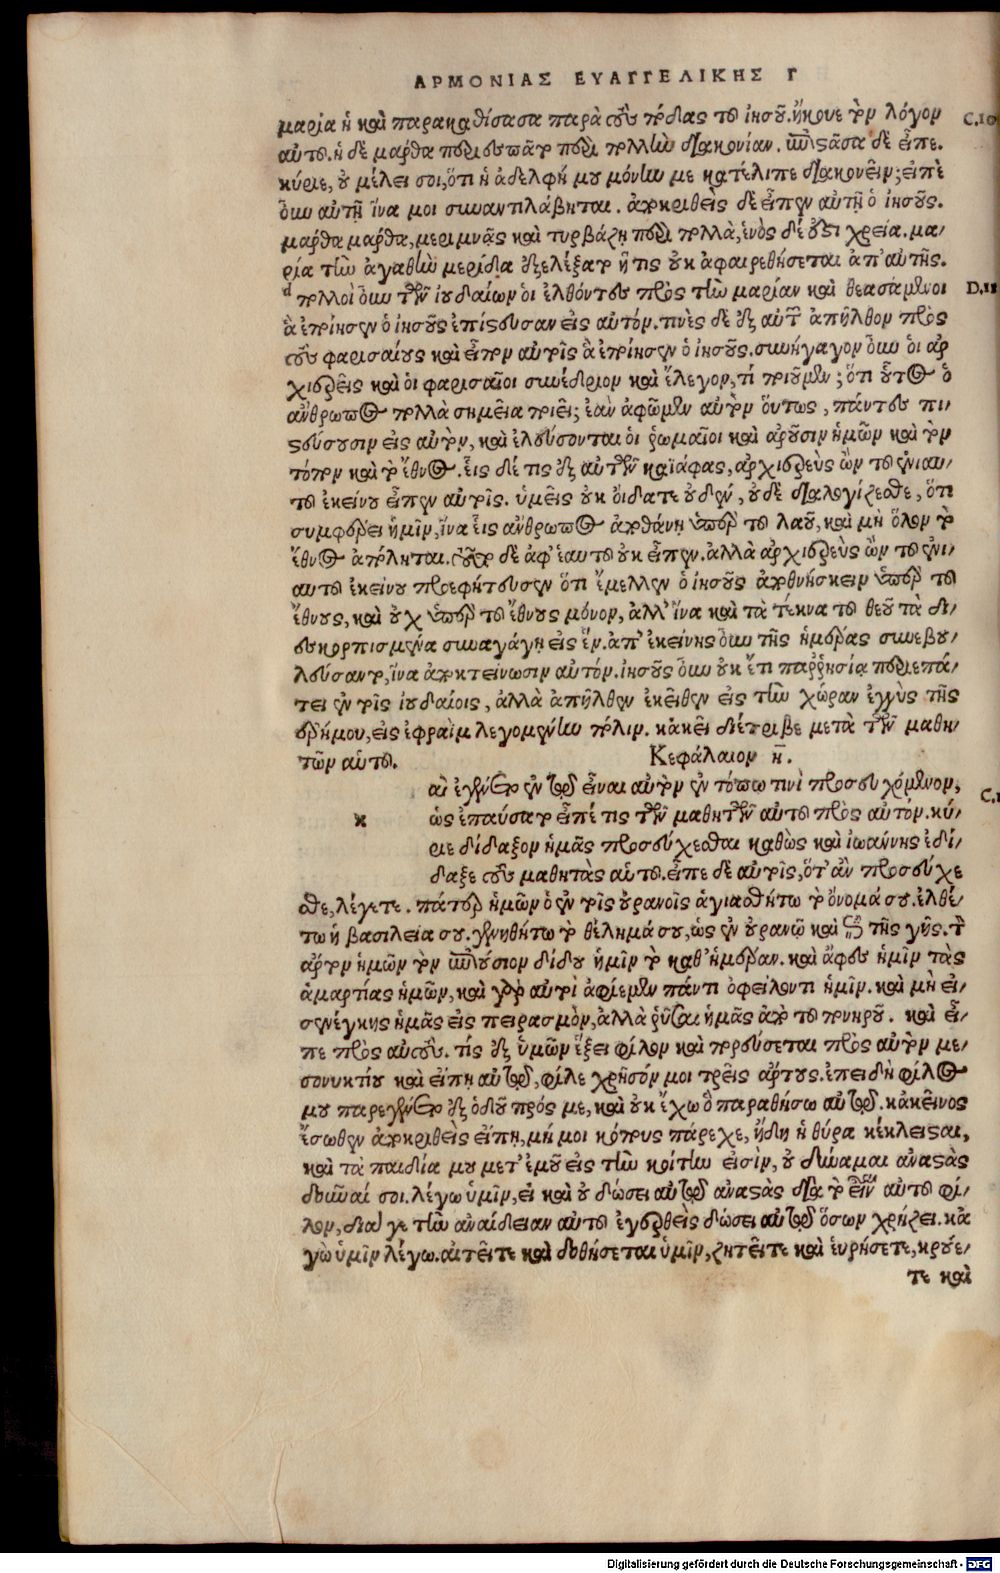 ΑΡΜΟΝΙΑΣ ΕΥΑΓΓΕΛΙΚΗΣ Γ
μαρία ἣ καὶ παρακαθίσασα παρὰ τοὺς πόδας τοῦ ἰησοῦ. ἤκουε τὸν λόγον C.10
αὐτοῦ. ἡ δὲ μάρθα περιεσπᾶτο περὶ πολλὴν διακονίαν. ἐπιστᾶσα δὲ εἶπε.
κύριε, οὐ μέλει σοι, ὅτι ἡ ἀδελφή μου μόνην με κατέλιπε διακονεῖν; εἰπὲ
οὖν αὐτῇ ἵνα μοι συναντιλάβηται. ἀποκριθεὶς δὲ εἶπεν αὐτῇ ὁ ἰησοῦς.
μάρθα μάρθα, μεριμνᾷς καὶ τυρβάζῃ περὶ πολλὰ, ἑνὸς δέ ἐστι χρεία. μα/
ρία τὴν ἀγαθὴν μερίδα ἐξελέξατο ἥ τις οὐκ ἀφαιρεθήσεται ἀπ' αὐτῆς.
d πολλοὶ οὖν τῶν ἰουδαίων οἱ ἐλθόντες πρὸς τὴν μαρίαν καὶ θεασάμενοι D.11
ἃ ἐποίησεν ὁ ἰησοῦς ἐπίστευσαν εἰς αὐτόν. τινὲς δὲ ἐξ αὐτῶν ἀπῆλθον πρὸς
τοὺς φαρισαίους καὶ εἶπον αὐτοῖς ἃ ἐποίησεν ὁ ἰησοῦς. συνήγαγον οὖν οἱ ἀρ
χιερεῖς καὶ οἱ φαρισαῖοι συνέδριον καὶ ἔλεγον, τί ποιοῦμεν; ὅτι οὗτος ὁ
ἄνθρωπος πολλὰ σημεῖα ποιεῖ; ἐὰν ἀφῶμεν αὐτὸν οὕτως, πάντες πι/
στεύσουσιν εἰς αὐτὸν, καὶ ἐλεύσονται οἱ ῥωμαῖοι καὶ ἀροῦσιν ἡμῶν καὶ τὸν
τόπον καὶ τὸ ἔθνος. εἷς δέ τις ἐξ αὐτῶν καϊάφας, ἀρχιερεὺς ὢν τοῦ ἐνιαυ/
τοῦ ἐκείνου εἶπεν αὐτοῖς. ὑμεῖς οὐκ οἴδατε οὐδέν, οὐδὲ διαλογίζεσθε, ὅτι
συμφέρει ἡμῖν, ἵνα εἷς ἄνθρωπος ἀποθάνῃ ὑπὲρ τοῦ λαοῦ, καὶ μὴ ὅλον τὸ
ἔθνος ἀπόληται. τοῦτο δὲ ἀφ' ἑαυτοῦ οὐκ εἶπεν. ἀλλὰ ἀρχιερεὺς ὢν τοῦ ἐνι/
αυτοῦ ἐκείνου προεφήτευσεν ὅτι ἔμελλεν ὁ ἰησοῦς ἀποθνήσκειν ὑπὲρ τοῦ
ἔθνους, καὶ οὐχ ὑπὲρ τοῦ ἔθνους μόνον, ἀλλ' ἵνα καὶ τὰ τέκνα τοῦ θεοῦ τὰ δι/
εσκορπισμένα συναγάγῃ εἰς ἕν. ἀπ' ἐκείνης οὖν τῆς ἡμέρας συνεβου/
λεύσαντο, ἵνα ἀποκτείνωσιν αὐτόν. ἰησοῦς οὖν οὐκ ἔτι παῤῥησίᾳ περιεπά/
τει ἐν τοῖς ἰουδαίοις, ἀλλὰ ἀπῆλθεν ἐκεῖθεν εἰς τὴν χώραν ἐγγὺς τῆς
ἐρήμου, εἰς ἐφραῒμ λεγομένην πόλιν. κἀκεῖ διέτριβε μετὰ τῶν μαθη/
τῶν αὑτοῦ. Κεφάλαιον η̄.
αὶ ἐγένετο ἐν τῷ εἶναι αὐτὸν ἐν τόπῳ τινὶ προσευχόμενον,
κ ὡς ἐπαύσατο εἶπέ τις τῶν μαθητῶν αὐτοῦ πρὸς αὐτόν. κύ/
ριε δίδαξον ἡμᾶς προσεύχεσθαι καθὼς καὶ ἰωάννης ἐδί/
δαξε τοὺς μαθητὰς αὑτοῦ. εἶπε δὲ αὐτοῖς, ὅτ' ἂν προσεύχε
σθε, λέγετε. πάτερ ἡμῶν ὁ ἐν τοῖς οὐρανοῖς ἁγιασθήτω τὸ ὄνομά σου. ἐλθέ/
τω ἡ βασιλεία σου. γενηθήτω τὸ θέλημά σου, ὡς ἐν οὐρανῷ καὶ ἐπὶ τῆς γῆς. τὸν
ἄρτον ἡμῶν τὸν ἐπιούσιον δίδου ἡμῖν τὸ καθ' ἡμέραν. καὶ ἄφες ἡμῖν τὰς
ἁμαρτίας ἡμῶν, καὶ γὰρ αὐτοὶ ἀφίεμεν παντὶ ὀφείλοντι ἡμῖν. καὶ μὴ εἰ/
σενέγκῃς ἡμᾶς εἰς πειρασμὸν, ἀλλὰ ῥῦσαι ἡμᾶς ἀπὸ τοῦ πονηροῦ. καὶ εἶ/
πε πρὸς αὐτούς. τίς ἐξ ὑμῶν ἕξει φίλον καὶ πορεύσεται πρὸς αὐτὸν με/
σονυκτίου καὶ εἴπῃ αὐτῷ, φίλε χρῆσόν μοι τρεῖς ἄρτους. ἐπειδὴ φίλος
μου παρεγένετο ἐξ ὁδοῦ πρός με, καὶ οὐκ ἔχω ὃ παραθήσω αὐτῷ. κἀκεῖνος
ἔσωθεν ἀποκριθεὶς εἴπῃ, μή μοι κόπους πάρεχε, ἤδη ἡ θύρα κέκλεισται,
καὶ τὰ παιδία μου μετ' ἐμοῦ εἰς τὴν κοίτην εἰσὶν, οὐ δύναμαι ἀναστὰς
δοῦναί σοι. λέγω ὑμῖν, εἰ καὶ οὐ δώσει αὐτῷ ἀναστὰς διὰ τὸ εἶναι αὐτοῦ φί/
λον, διά γε τὴν ἀναίδειαν αὐτοῦ ἐγερθεὶς δώσει αὐτῷ ὅσων χρῄζει. κἀ
γὼ ὑμῖν λέγω. αἰτεῖτε καὶ δοθήσεται ὑμῖν, ζητεῖτε καὶ εὑρήσετε, κρούε/
τε καὶ
Digitalisierung gefördert durch die Deutsche Forschungsgemeinschaft - DFG